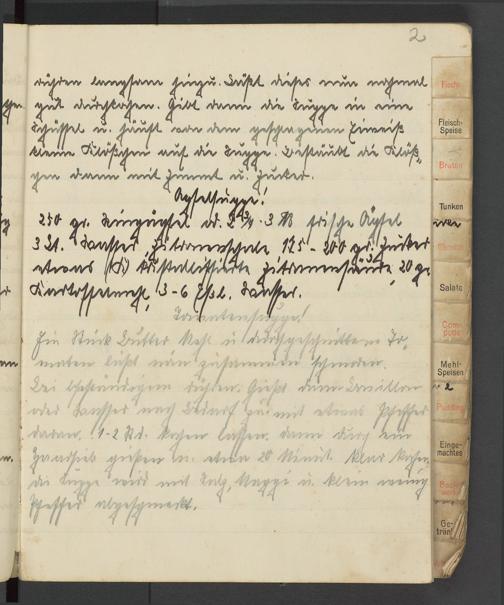 2
rühren langsam hinzu. Läßt dieses nun nochmal
gut durchkochen. Gibt dann die Suppe in eine
Schüssel u. häuft von dem geschlagenen Eiweiß
kleine Klößchen auf die Suppe. Bestäubt die Klöß-
chen dann mit Zimmt u. Zucker.
Apfelsuppe!
250 gr. Ringäpfel od. 2 3/4 - 3 ℔ frische Äpfel
3 Lt. Wasser, Zitronenschale 125 - 200 gr. Zucker
etwas kristallisierte Zitronensäure, 20 gr
Kartoffelmehl, 3-6 Eßl. Wasser.
Tomatensuppe!
Ein Stück Butter Mehl u durchgeschnittene To-
maten läßt man zusammen schmoren.
Bei beständigem rühren. Gießt dann Bouillon
oder Wasser nach Bedarf zu mit etwas Pfeffer
daran. 1-2 Std. kochen lassen. dann durch ein
Haarsieb gießen u. etwa 20 Minut. klar kochen.
die Suppe wird mit Salz, Maggi u. klein wenig
Pfeffer abgeschmeckt.
Fische
Fleisch-
Speise
Braten
Tunken
Salate
Com-
potte
Mehl-
Speisen
Pudding
Einge-
machtes
Back-
werk
Ge-
tränke